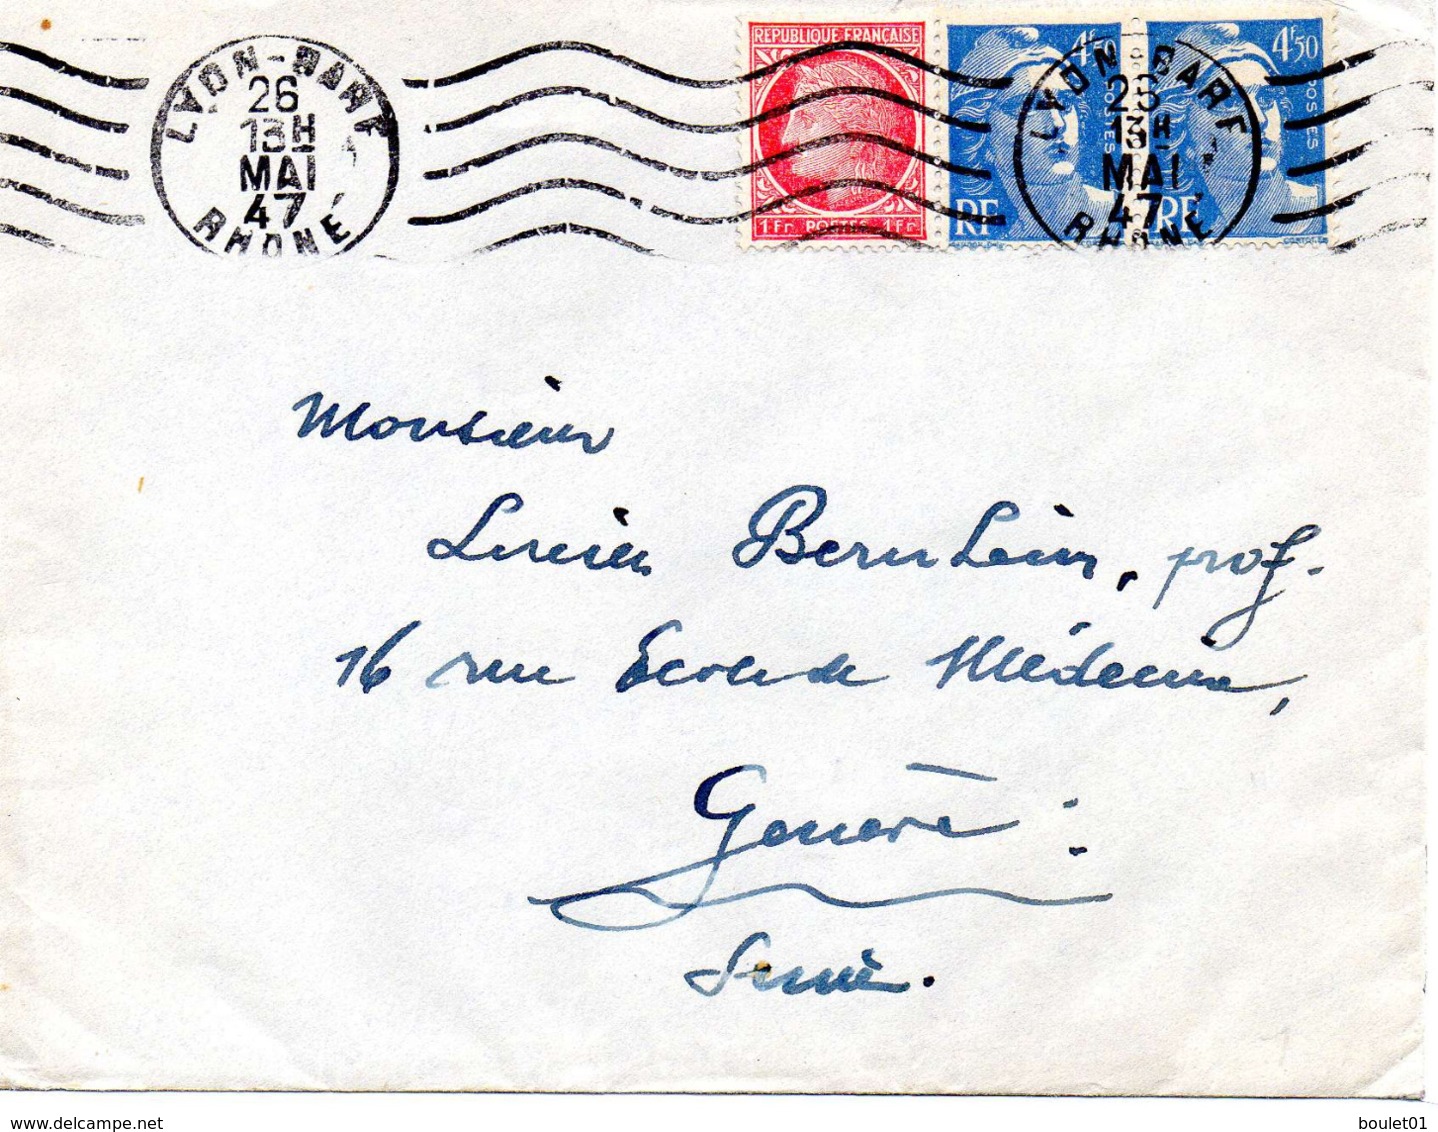 LYON-GARE
26
13H
MAI
47
RHONE
REPUBLIQUE FRANÇAISE
1Fr. POSTES 1Fr.
4F50
POSTES
RF
4F50
POSTES
RF
LYON-GARE
26
13H
MAI
47
RHONE
Monsieur
Lucien Bernheim, prof.
16 rue Ecole de Médecine,
Genève
Suisse.
www.delcampe.net
boulet01